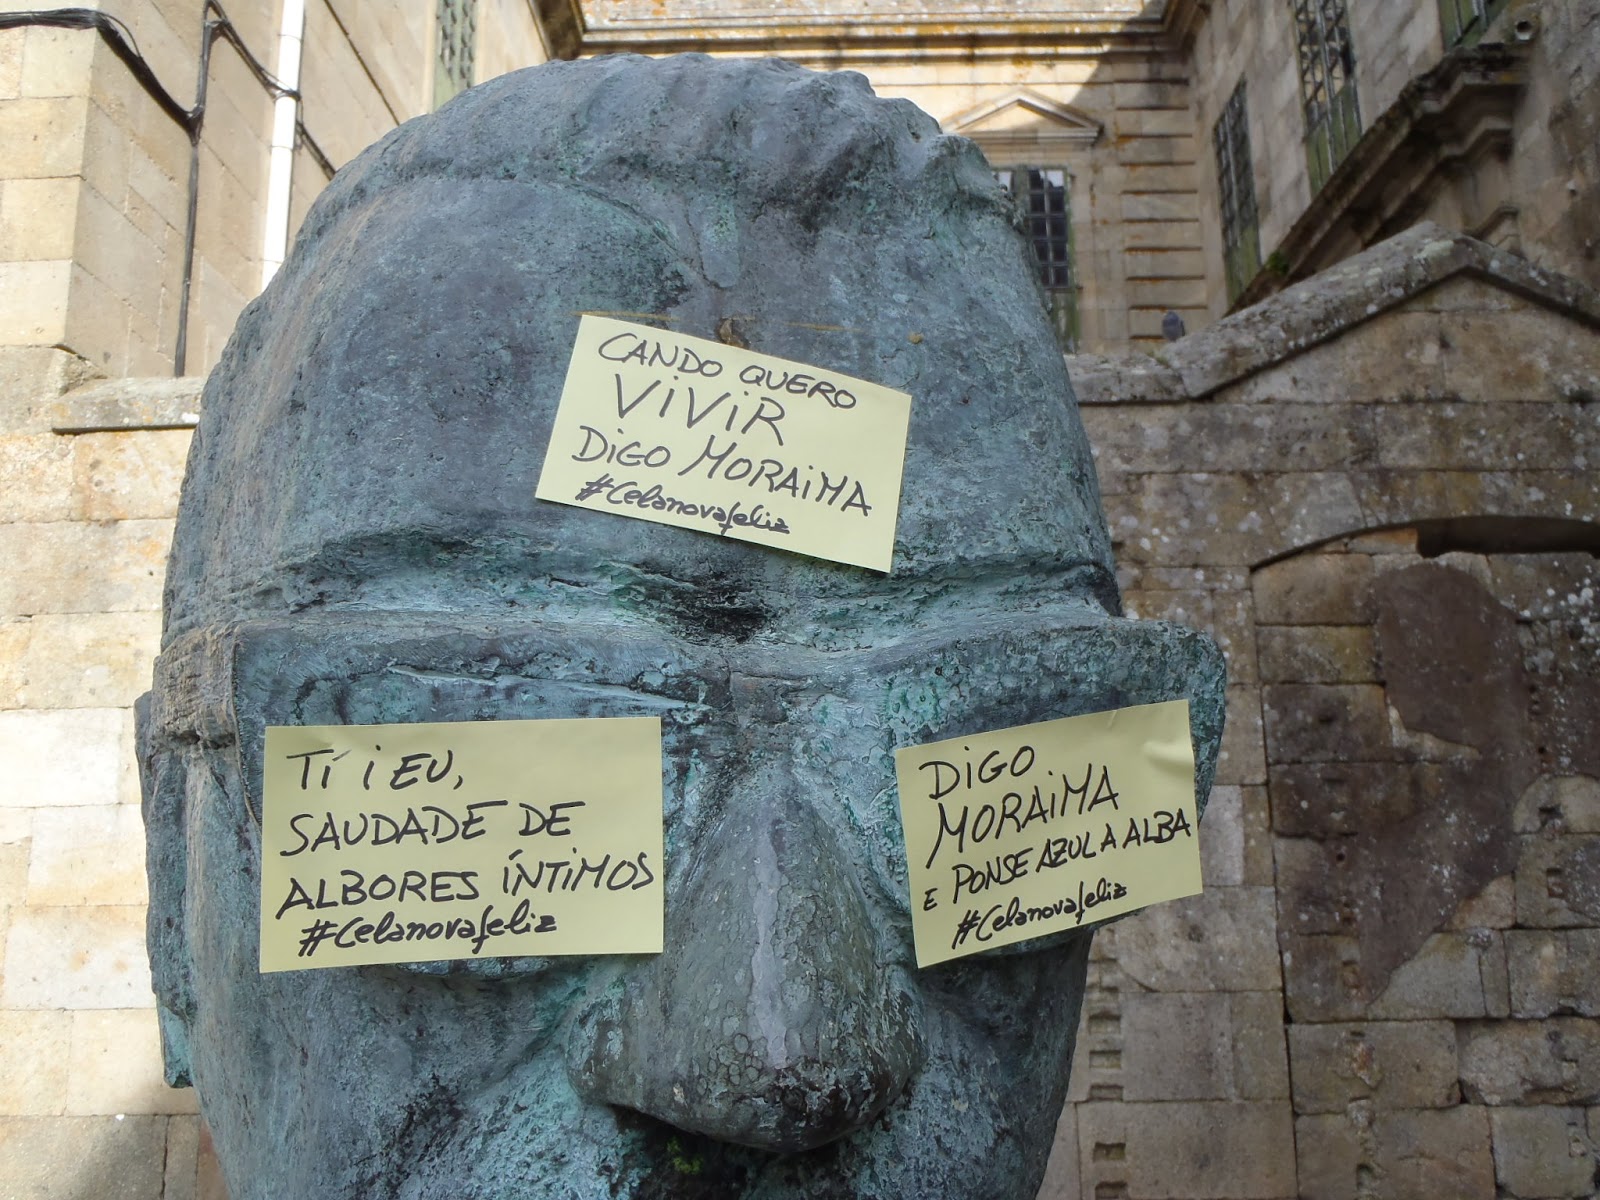 CANDO QUERO
ViViR
DiGO MORAiMA
#Celanovafeliz
Tí i EU,
SAUDADE DE
ALBORES ÍNTiMOS
#Celanovafeliz
DiGO
MORAiMA
E PONSE AZUL A ALBA
#Celanovafeliz